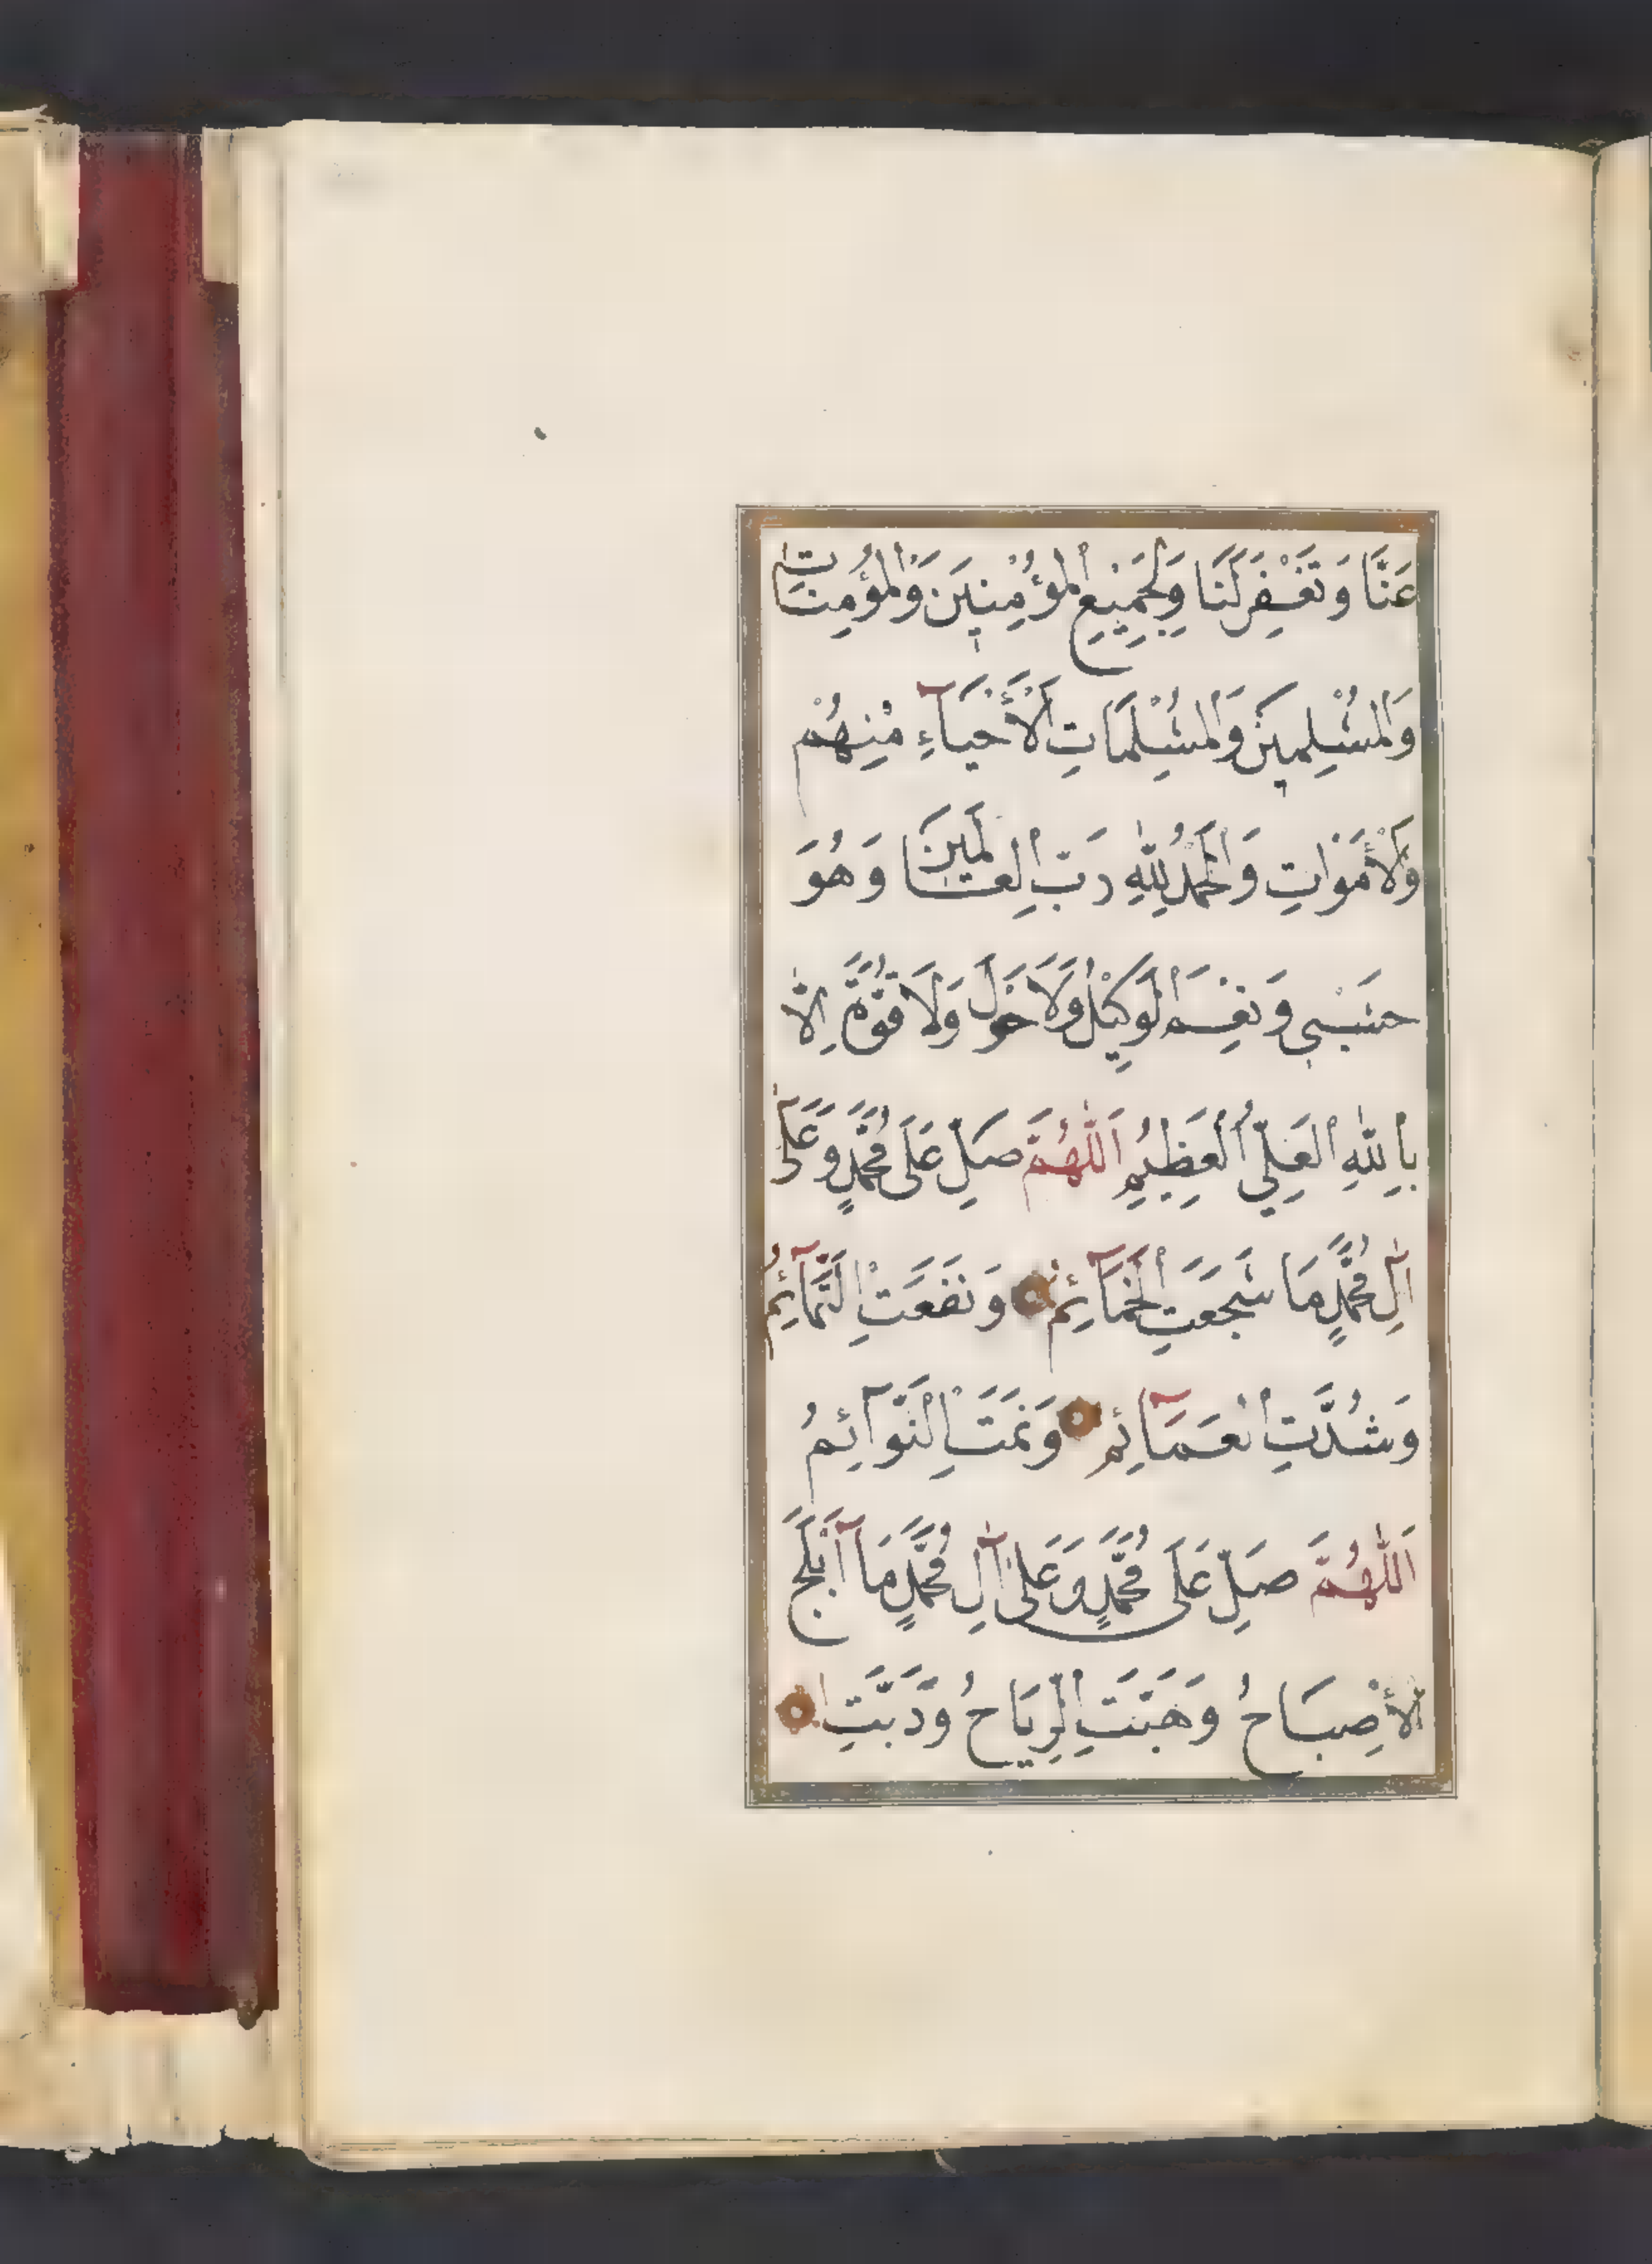 عَنَّا وَتَغْفِرَ لَنَا وَلِجَمِيعِ الْمُؤْمِنِينَ وَالْمُؤْمِنَاتِ
وَالْمُسْلِمِينَ وَالْمُسْلِمَاتِ الْأَحْيَآءِ مِنْهُمْ
وَالْأَمْوَاتِ وَالْحَمْدُ لِلّٰهِ رَبِّ الْعَالَمِينَ وَهُوَ
حَسْبِي وَنِعْمَ الْوَكِيْلُ وَلَا حَوْلَ وَلَا قُوَّةَ اِلَّا
بِاللّٰهِ الْعَلِيِّ الْعَظِيْمِ اَللّٰهُمَّ صَلِّ عَلَى مُحَمَّدٍ وَعَلَى
اٰلِ مُحَمَّدٍ مَا سَجَعَتِ الْحَمَآئِمُ وَنَفَعَتِ التَّمَآئِمُ
وَشُدَّتِ الْعَمَآئِمُ وَنَمَتِ النَّوَآئِمُ
اَللّٰهُمَّ صَلِّ عَلَى مُحَمَّدٍ وَعَلَى اٰلِ مُحَمَّدٍ مَا أَبْلَجَ
الْأِصْبَاحُ وَهَبَّتِ الرِّيَاحُ وَدَبَّتِ